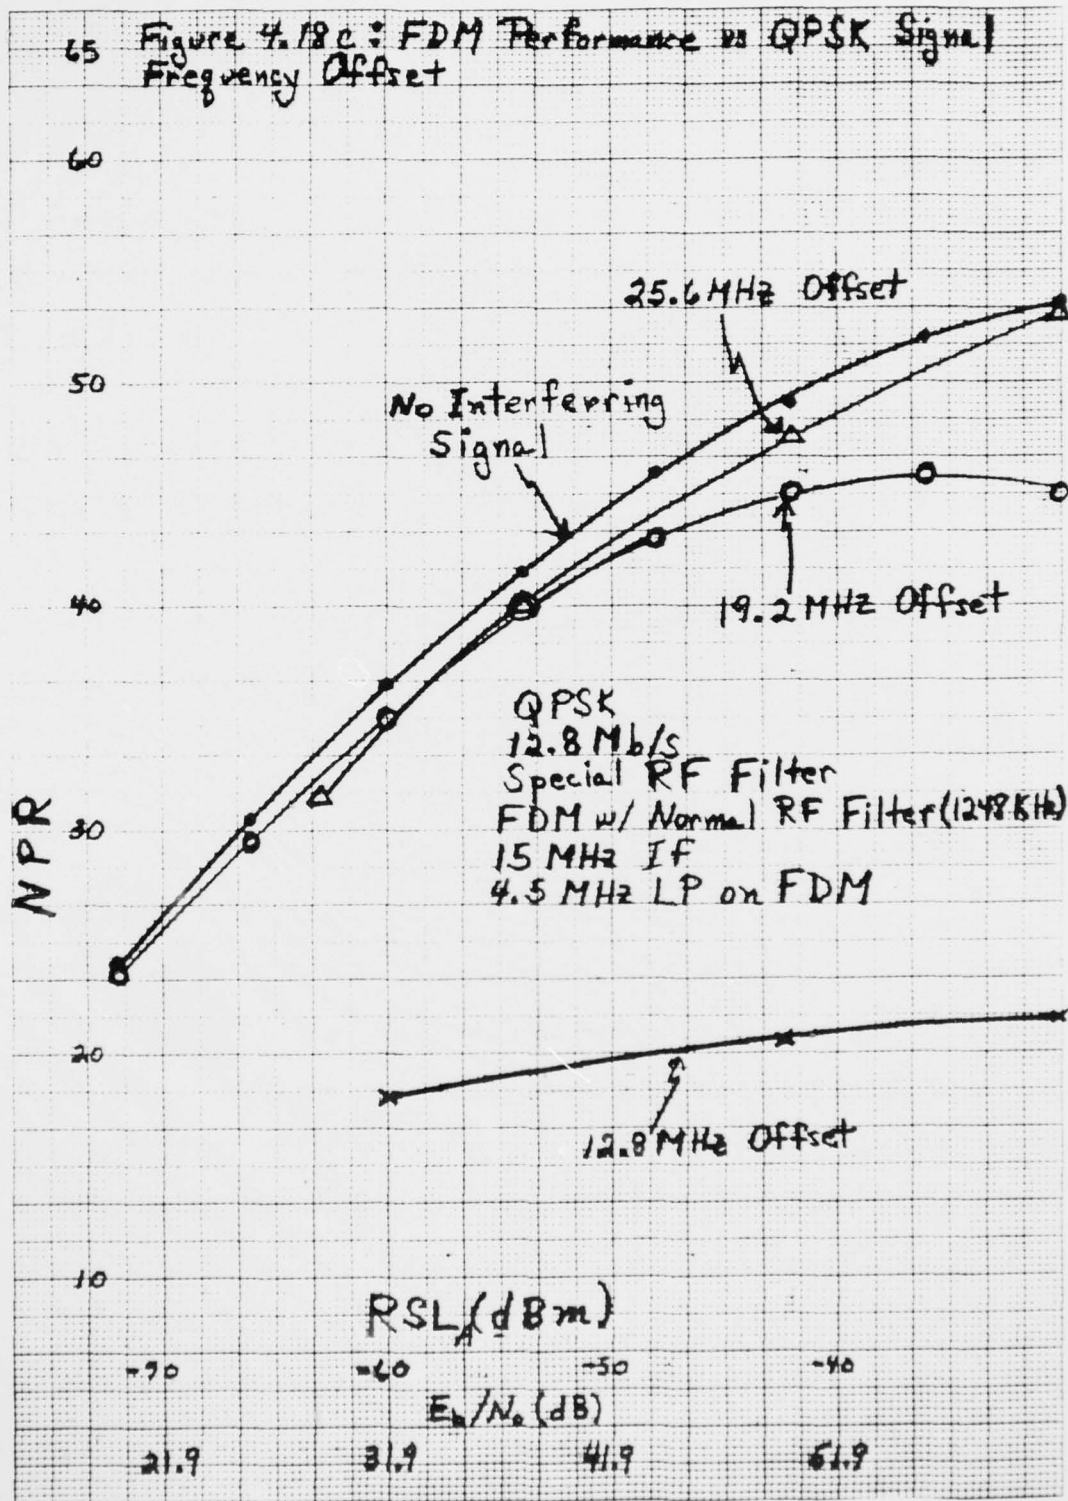 Figure 4.18c : FDM Performance vs QPSK Signal
Frequency Offset
65
60
25.6 MHz Offset
50
No Interferring
Signal
40
19.2 MHz Offset
QPSK
12.8 Mb/s
Special RF Filter
FDM w/ Normal RF Filter (1248 KHz)
15 MHz IF
4.5 MHz LP on FDM
NPR
30
20
12.8 MHz Offset
10
RSL_A (dBm)
-70 -60 -50 -40
E_b/N_o (dB)
21.9 31.9 41.9 51.9